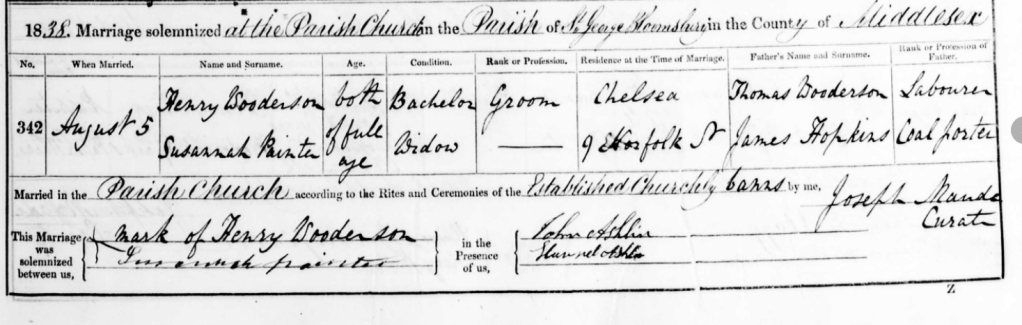 1838. Marriage solemnized at the Parish Church in the Parish of St. George Bloomsbury in the County of Middlesex
No. When Married. Name and Surname. Age. Condition. Rank or Profession. Residence at the Time of Marriage. Father's Name and Surname. Rank or Profession of Father.
Henry Wooderson both Bachelor Groom Chelsea Thomas Wooderson Labourer
342 August 5 of full
Susannah Painter age Widow 9 Norfolk St James Hopkins Coal porter
Married in the Parish Church according to the Rites and Ceremonies of the Established Church by banns by me,
Joseph Maude
Curate
This Marriage was solemnized between us, mark of Henry Wooderson in the Presence of us, John Ashlin
Susannah painter Ashlin
Z